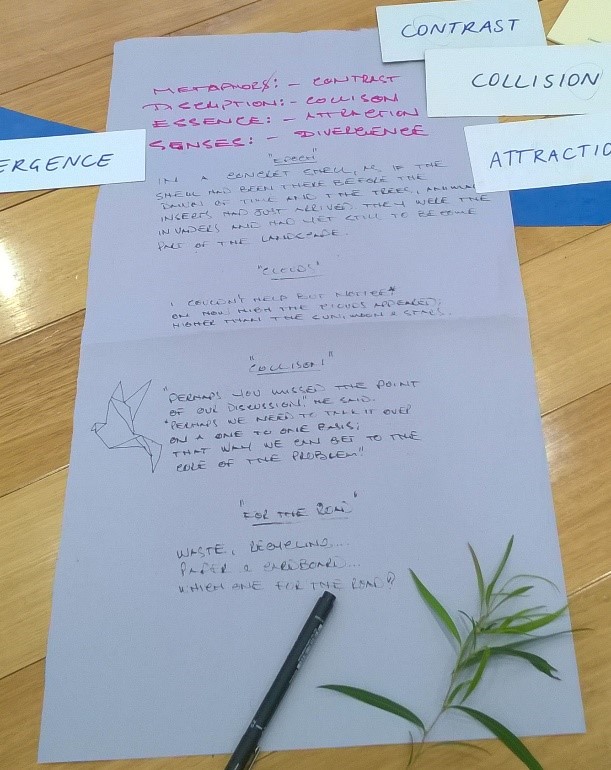 CONTRAST
COLLISION
ATTRACTIO
ERGENCE
METAPHORS: - CONTRAST
DISCRIPTION: - COLLISON
ESSENCE: - ATTRACTION
SENSES: - DIVERGENCE
"EPOCH"
IN A CONCRET SHELL, AS IF THE
SHELL HAD BEEN THERE BEFORE THE
DAWN OF TIME AND THE TREES,
INSERTS HAD JUST ARRIVED. THEY WERE THE
INVADERS AND HAD YET STILL TO BECOME
PART OF THE LANDSCAPE.
"CLOUDS"
I COULDN'T HELP BUT NOTICE
ON HOW HIGH THE APPEARED;
HIGHER THAN THE SUN, MOON & STARS.
"COLLISON!"
"PERHAPS YOU MISSED THE POINT
OF OUR DISCUSSION," HE SAID.
"PERHAPS WE NEED TO TALK IT OVER
ON A ONE TO ONE BASIS;
THAT WAY WE CAN GET TO THE
CORE OF THE PROBLEM."
"FOR THE ROAD"
WASTE, RECYCLING....
PAPER & CARDBOARD...
WHICH ONE FOR THE ROAD?